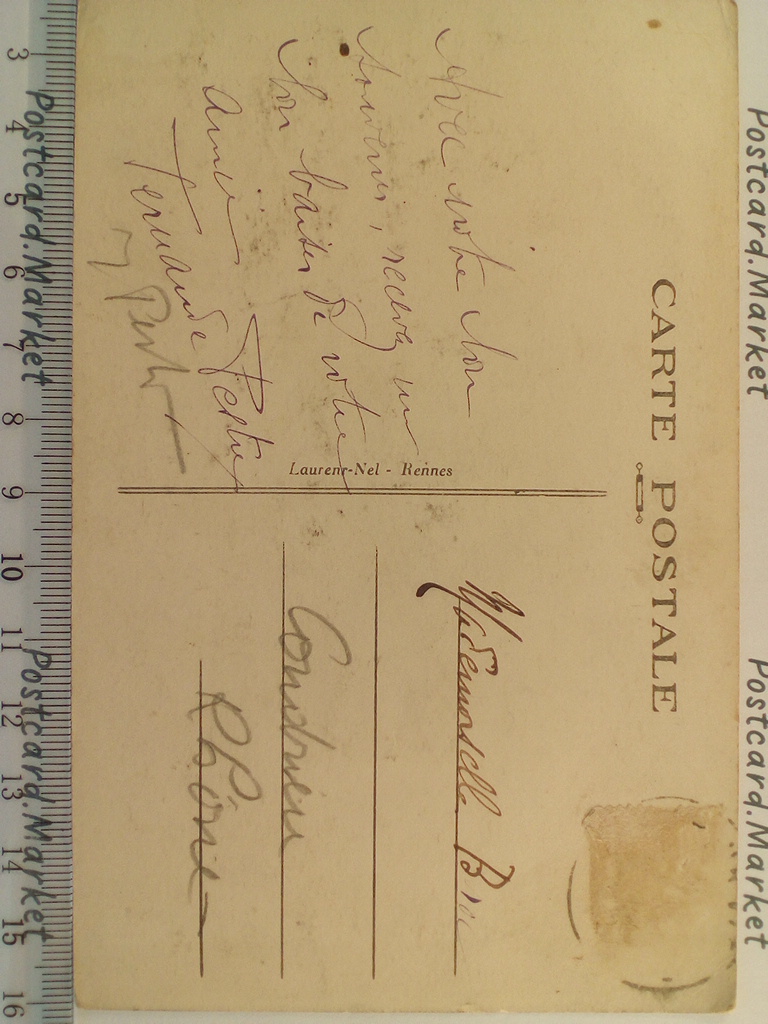 CARTE POSTALE
Avec notre bon
souvenir, recevez un
bon baiser de votre
amie
Fernande
Laurent-Nel - Rennes
Mademoiselle
Condrieu
Rhône
Postcard.Market
Postcard.Market
Postcard.Market
Postcard.Market
3 4 5 6 7 8 9 10 11 12 13 14 15 16